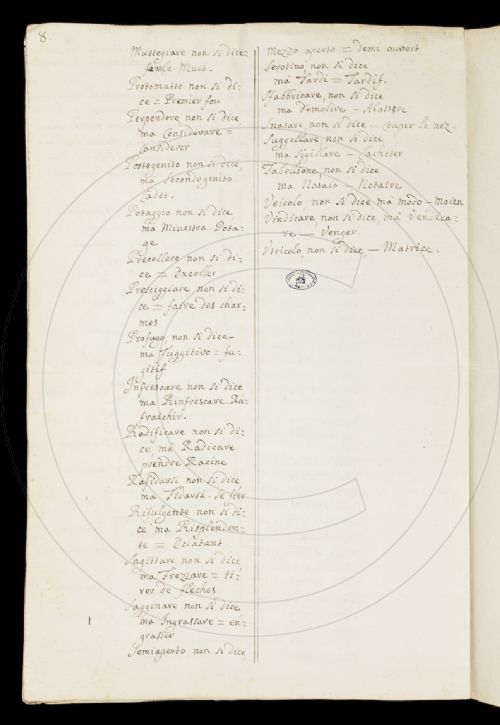 8.
Mussegiare non si dice=
Protomatto non si di=
ce = Premier fou
Perpendere non si dice
ma Considerare =
Considerer
Postegenito non si dice,
ma Secondogenito
Cadet.
Potaggio non si dice
ma Minestra Pota=
ge
Precellere non si di=
ce = Exceller
Prestiggiare non si di=
ce = faire des char=
mes
Profugo non si dice
ma Fuggitivo = fu=
gitif
Infrescare non si dice
ma Rinfrescare. Ra=
fraichir.
Radificare non si di=
ce ma Radicare
prendre Racine
Rafidarsi non si dice
ma Fidarsi. Se fier
Rifulgente non si di=
ce ma Risplenden=
te = Eclatant
Sagittare non si dice,
ma Frezzare = ti=
rer de fleches
Sagginare non si dice
ma Ingrassare = en=
grasser
Semiaperto non si dice
Mezzo aperto = demi ouvert
Serotino, non si dice
ma Tardi = Tardif.
Sfabbricare, non si dice
ma demolire -
Snasare non si dice - Couper le nez.
Suggellare non si dice
ma Sigillare - Cacheter
Tabellione, non si dice
ma Notaio - Notaire
Veicolo non si dice ma modo - Moien
Vindicare, non si dice, ma Vendica=
re - Venger.
Utricolo, non si dice, - Matrice.